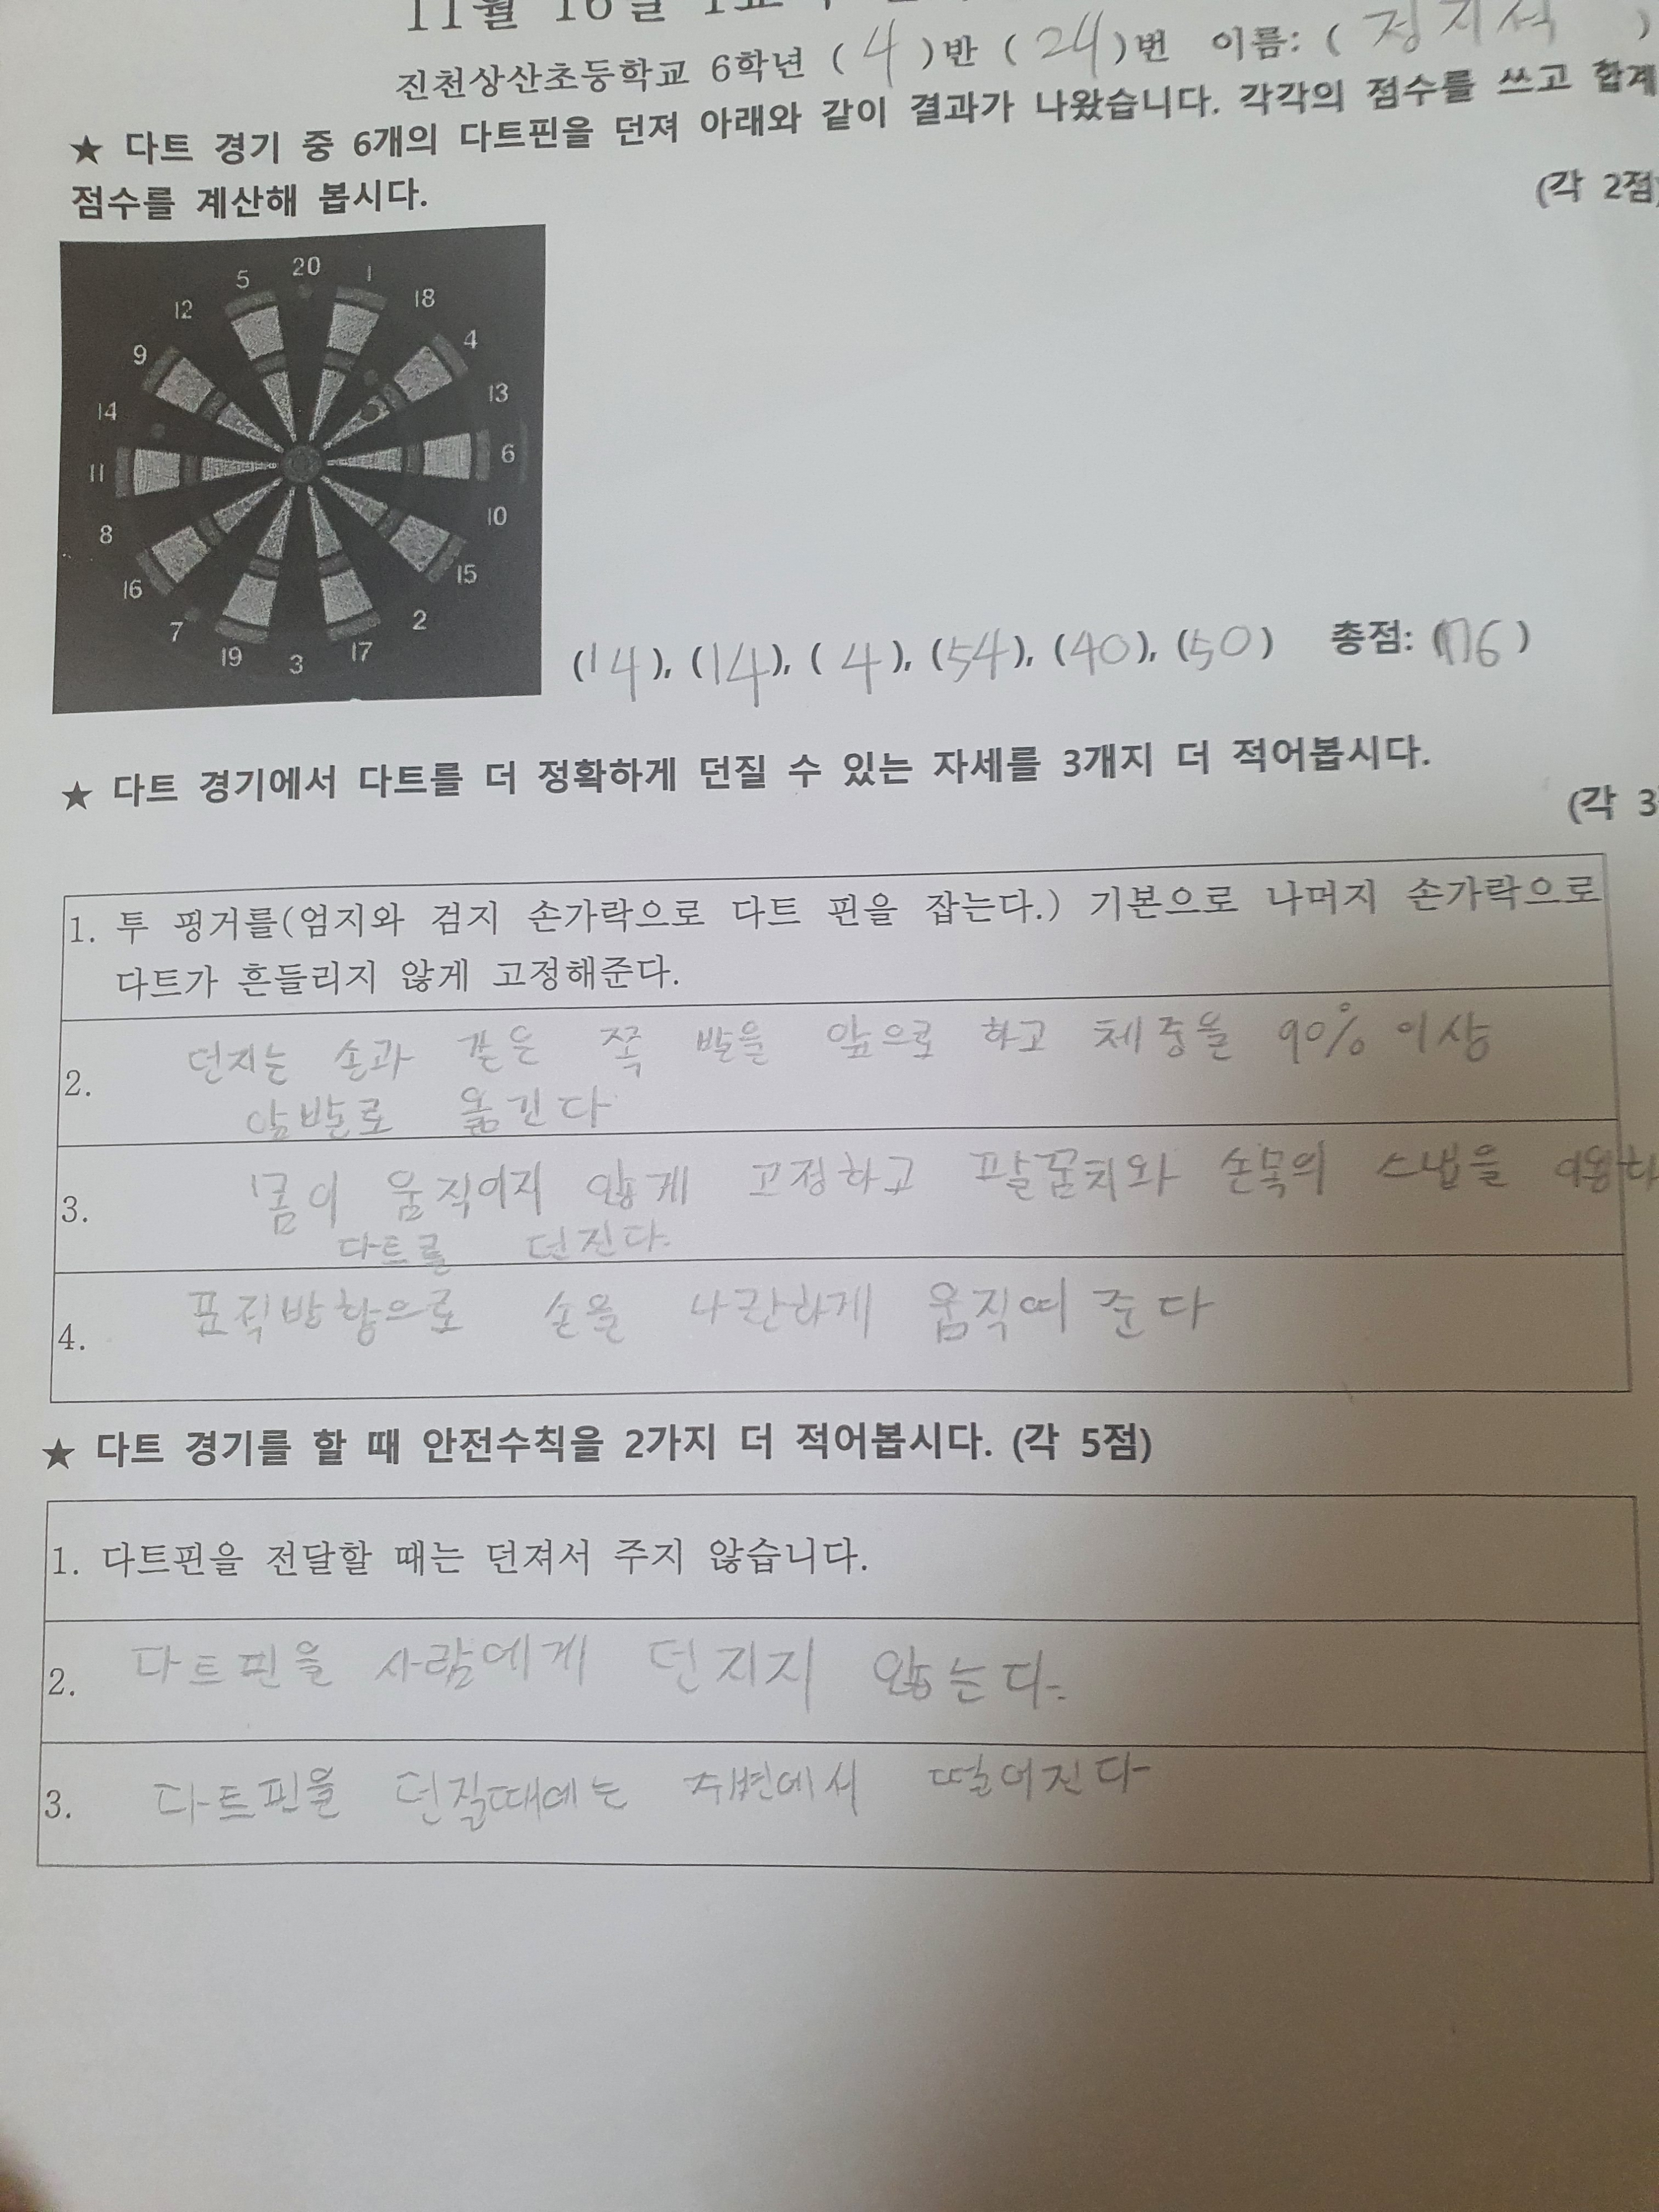 11월 16일 1교시
진천상산초등학교 6학년 ( 4 )반 ( 24 )번 이름: ( 정지석 )
★ 다트 경기 중 6개의 다트핀을 던져 아래와 같이 결과가 나왔습니다. 각각의 점수를 쓰고 합계
점수를 계산해 봅시다.
(각 2점)
20
5 1
12 18
9 4
14 13
11 6
8 10
16 15
7 2
19 3 17
(14), (14), ( 4 ), (54), (40), (50) 총점: (176)
★ 다트 경기에서 다트를 더 정확하게 던질 수 있는 자세를 3개지 더 적어봅시다.
(각 3
1. 투 핑거를(엄지와 검지 손가락으로 다트 핀을 잡는다.) 기본으로 나머지 손가락으로
다트가 흔들리지 않게 고정해준다.
2. 던지는 손과 같은 쪽 발을 앞으로 하고 체중을 90% 이상
앞발로 옮긴다
3. 몸이 움직이지 않게 고정하고 팔꿈치와 손목의 스냅을
다트를 던진다.
4. 표적방향으로 손을 나란하게 움직여 준다
★ 다트 경기를 할 때 안전수칙을 2가지 더 적어봅시다. (각 5점)
1. 다트핀을 전달할 때는 던져서 주지 않습니다.
2. 다트핀을 사람에게 던지지 않는다.
3. 다트핀을 던질때에는 주변에서 떨어진다